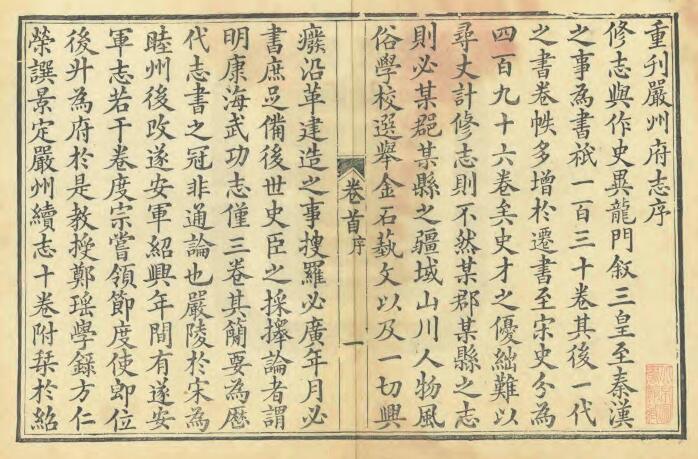 重刊嚴州府志序
修志與作史異龍門叙三皇至秦漢
之事為書祇一百三十卷其後一代
之書卷帙多增於遷書至宋史分為
四百九十六卷矣史才之優絀難以
尋丈計修志則不然某郡某縣之志
則必某郡某縣之疆域山川人物風
俗學校選舉金石藝文以及一切興
卷首序
一
癈沿革建造之事搜羅必廣年月必
書庶足備後世史臣之採擇論者謂
明康海武功志僅三卷其簡要為歷
代志書之冠非通論也嚴陵於宋為
睦州後改遂安軍紹興年間有遂安
軍志若干卷度宗嘗領節度使卽位
後升為府於是教授鄭瑶學錄方仁
榮譔景定嚴州續志十卷附栞於紹